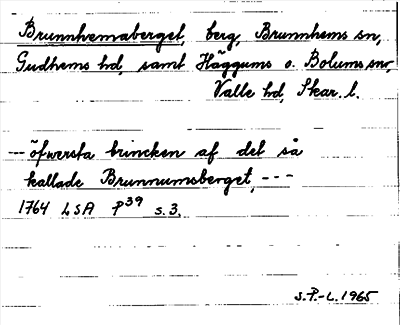 Brunnhemsberget, berg, Brunnhems sn,
Gudhems hd, samt Häggums o. Bolums snr,
Valle hd, Skar. l.
--- öfwersta brincken af det så
kallade Brunnumsberget, ---
1764 LSA P39 s. 3.
S.P.-L. 1965